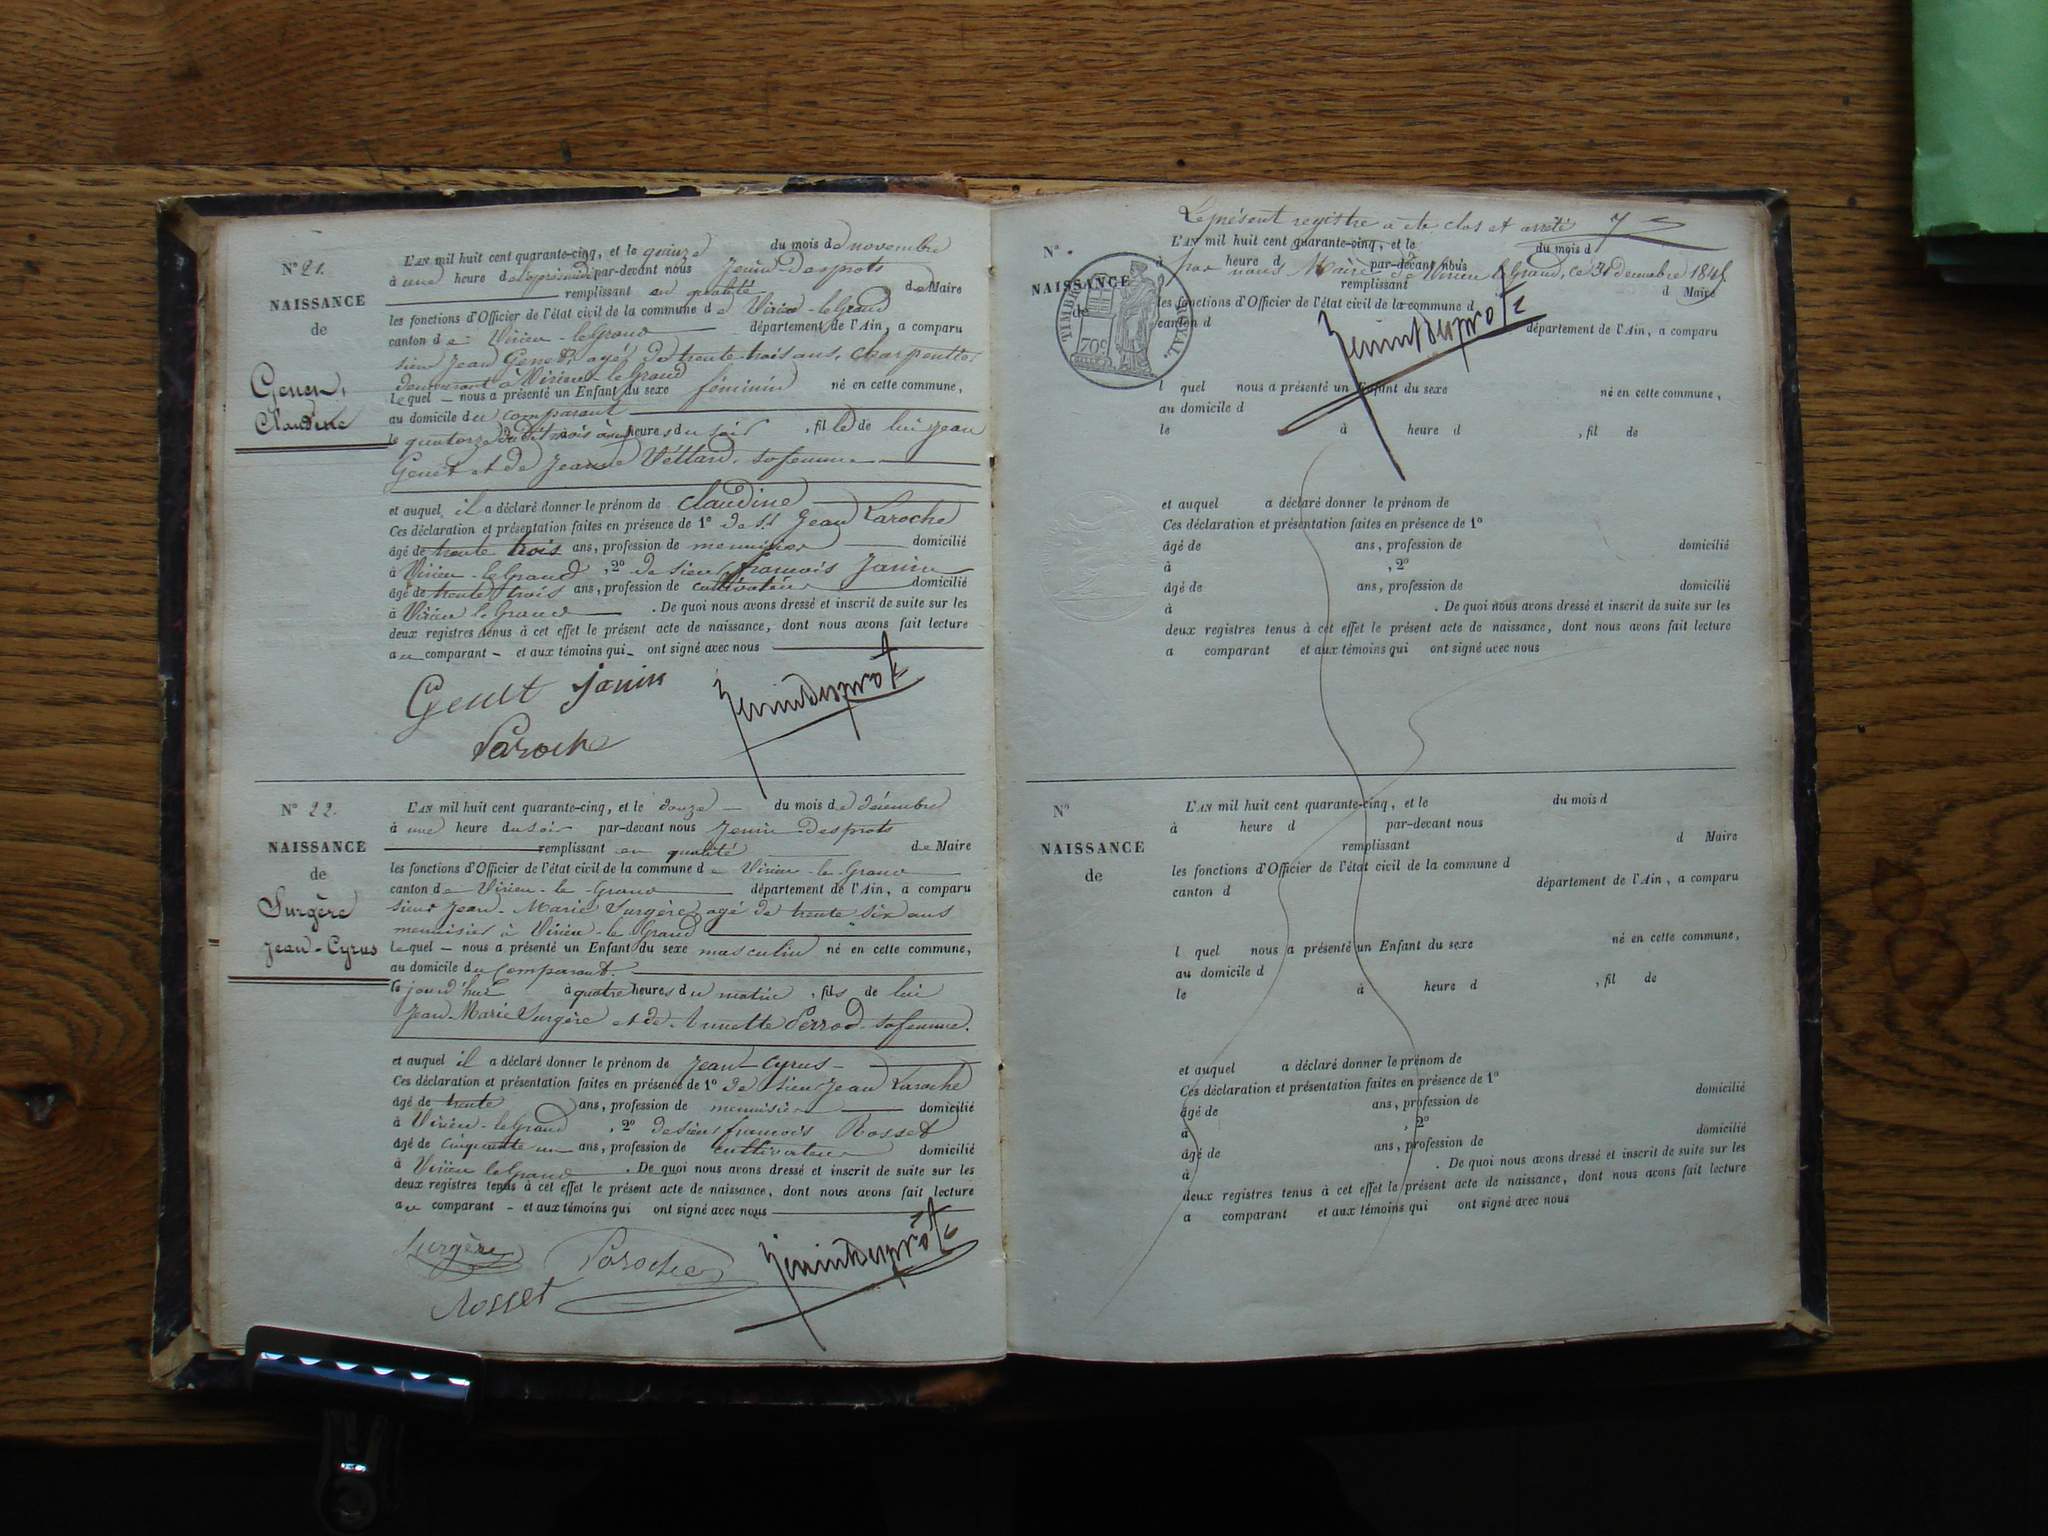 N° 21.
NAISSANCE
de
Genet,
Claudine
L'AN mil huit cent quarante-cinq, et le quinze du mois de novembre
à une heure de après midi par-devant nous Jenin Desprots
remplissant en qualité de Maire
les fonctions d'Officier de l'état civil de la commune de Virieu-le Grand
canton de Virieu-le Grand département de l'Ain, a comparu
sieur Jean Genet, agé de trente-trois ans, charpentier
demeurant à Virieu-le Grand
lequel nous a présenté un Enfant du sexe féminin né en cette commune,
au domicile du comparant
le quatorze dudit mois à heures du soir, fille de lui Jean
Genet et de Jeanne Véttard, sa femme
et auquel il a déclaré donner le prénom de Claudine
Ces déclaration et présentation faites en présence de 1° de sr Jean Laroche
âgé de trente trois ans, profession de menuisier domicilié
à Virieu-le Grand, 2° de sieur françois Janin
âgé de trente trois ans, profession de cultivateur domicilié
à Virieu le Grand. De quoi nous avons dressé et inscrit de suite sur les
deux registres tenus à cet effet le présent acte de naissance, dont nous avons fait lecture
au comparant et aux témoins qui ont signé avec nous
Genet Janin Jenin Desprots
Laroche
N° 22.
NAISSANCE
de
Surgère
Jean-Cyrus
L'AN mil huit cent quarante-cinq, et le douze du mois de décembre
à une heure du soir par-devant nous Jenin Desprots
remplissant en qualité de Maire
les fonctions d'Officier de l'état civil de la commune de Virieu-le-Grand
canton de Virieu-le-Grand département de l'Ain, a comparu
sieur Jean-Marie Surgère, agé de trente six ans
menuisier à Virieu-le Grand
lequel nous a présenté un Enfant du sexe masculin né en cette commune,
au domicile du comparant.
le jourd'hui à quatre heures du matin, fils de lui
Jean-Marie Surgère et de Annette Perrod sa femme.
et auquel il a déclaré donner le prénom de Jean-Cyrus
Ces déclaration et présentation faites en présence de 1° de sieur Jean Laroche
âgé de trente ans, profession de menuisier domicilié
à Virieu-le Grand, 2° de sieur françois Rosset
âgé de cinquante un ans, profession de cultivateur domicilié
à Virieu le Grand. De quoi nous avons dressé et inscrit de suite sur les
deux registres tenus à cet effet le présent acte de naissance, dont nous avons fait lecture
au comparant et aux témoins qui ont signé avec nous
Surgère Laroche Jenin Desprots
Rosset
Le présent registre a été clos et arrêté
par nous Maire de Virieu le Grand, le 31 décembre 1845
Jenin Desprots
N°
NAISSANCE
de
TIMBRE ROYAL
70c
L'AN mil huit cent quarante-cinq, et le du mois d
à heure d par-devant nous
remplissant d Maire
les fonctions d'Officier de l'état civil de la commune d
canton d département de l'Ain, a comparu
l quel nous a présenté un Enfant du sexe né en cette commune,
au domicile d
le à heure d , fil de
et auquel a déclaré donner le prénom de
Ces déclaration et présentation faites en présence de 1°
âgé de ans, profession de domicilié
à , 2°
âgé de ans, profession de domicilié
à . De quoi nous avons dressé et inscrit de suite sur les
deux registres tenus à cet effet le présent acte de naissance, dont nous avons fait lecture
a comparant et aux témoins qui ont signé avec nous
N°
NAISSANCE
de
L'AN mil huit cent quarante-cinq, et le du mois d
à heure d par-devant nous
remplissant d Maire
les fonctions d'Officier de l'état civil de la commune d
canton d département de l'Ain, a comparu
l quel nous a présenté un Enfant du sexe né en cette commune,
au domicile d
le à heure d , fil de
et auquel a déclaré donner le prénom de
Ces déclaration et présentation faites en présence de 1°
âgé de ans, profession de domicilié
à , 2°
âgé de ans, profession de domicilié
à . De quoi nous avons dressé et inscrit de suite sur les
deux registres tenus à cet effet le présent acte de naissance, dont nous avons fait lecture
a comparant et aux témoins qui ont signé avec nous